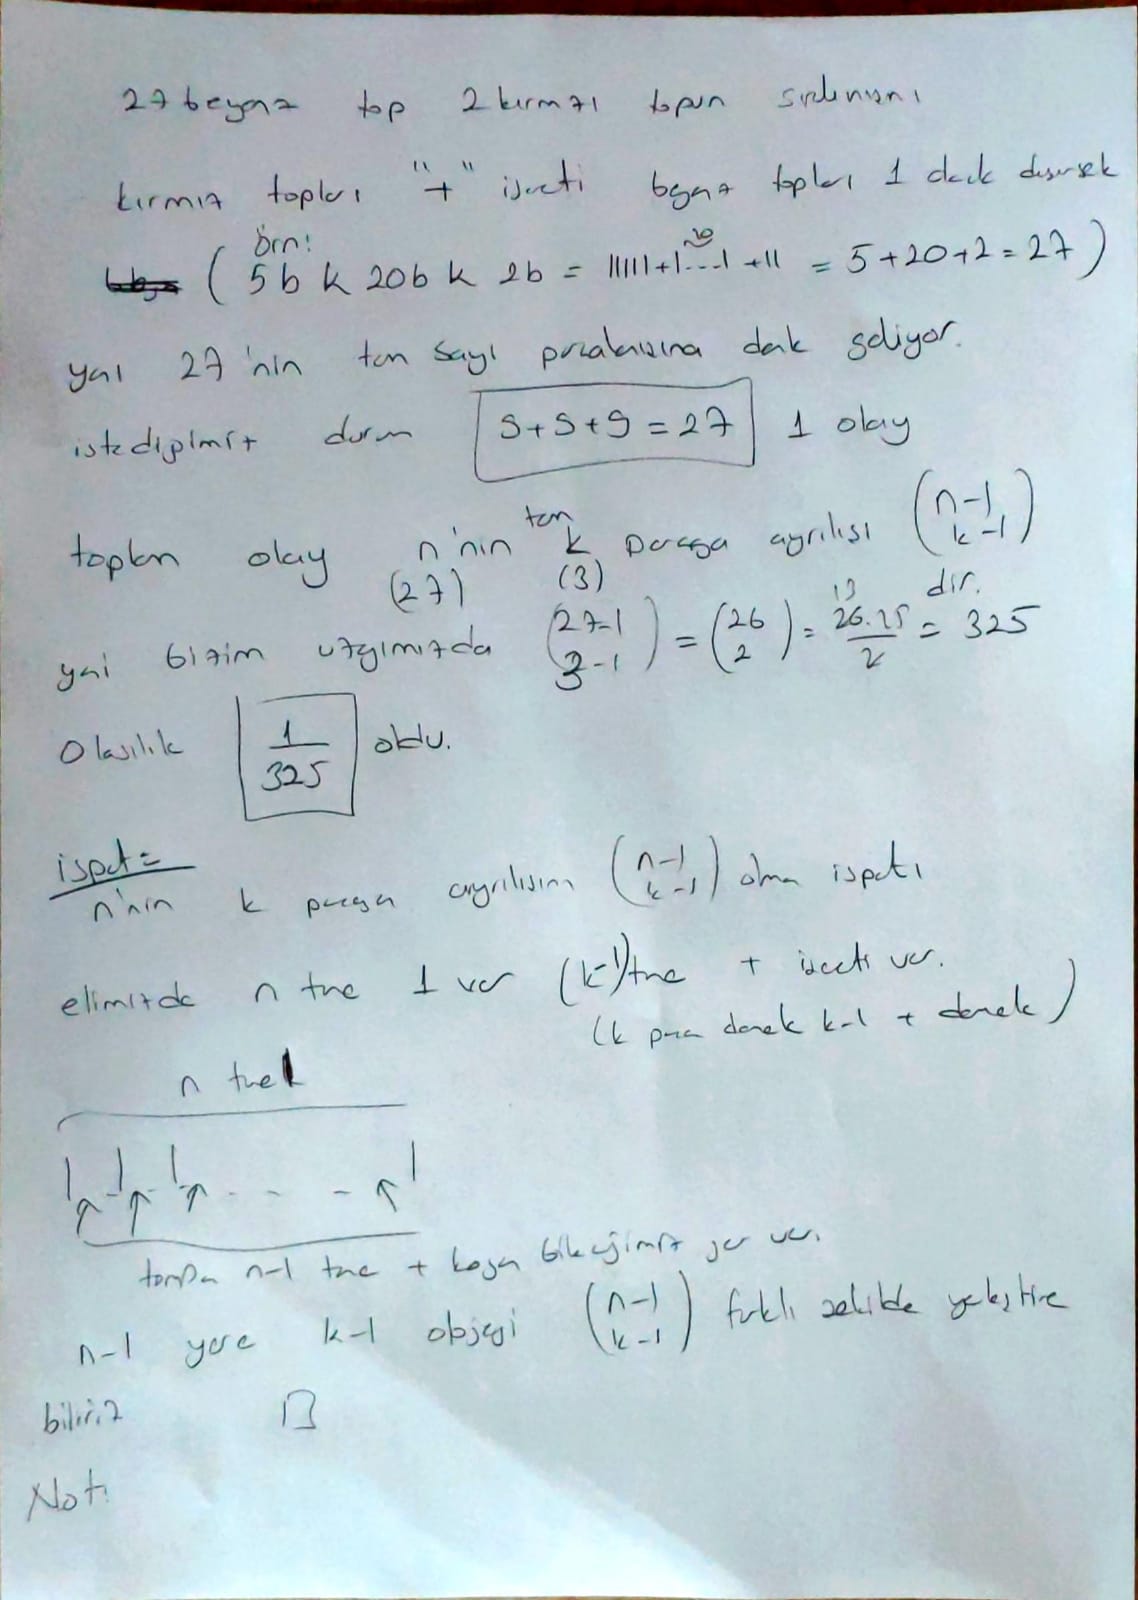 27 beyaz top 2 kırmızı topun sıralanışı
kırmızı topları "+" işareti beyaz topları 1 dersek
örn:
( 5b k 20b k 2b = 11111+1...1+11 = 5+20+2=27 )
20
yani 27'nin tam sayı parçalanışına denk geliyor.
istediğimiz durum 9+9+9=27 1 olay
toplam olay n'nin tam k parçaya ayrılışı (n-1 k-1)
(27) (3) dir.
yani bizim uzayımızda (27-1 3-1) = (26 2) = 26.25/2 = 325
13
Olasılık 1/325 oldu.
ispat=
n'nin k parçaya ayrılışının (n-1 k-1) olma ispatı
elimizde n tane 1 var (k-1) tane + işareti var.
(k parça demek k-1 + demek)
n tane 1
1 1 1 - - - 1
n-1 tane + koyabileceğimiz yer var.
n-1 yere k-1 objeyi (n-1 k-1) farklı şekilde yerleştire
biliriz □
Not: